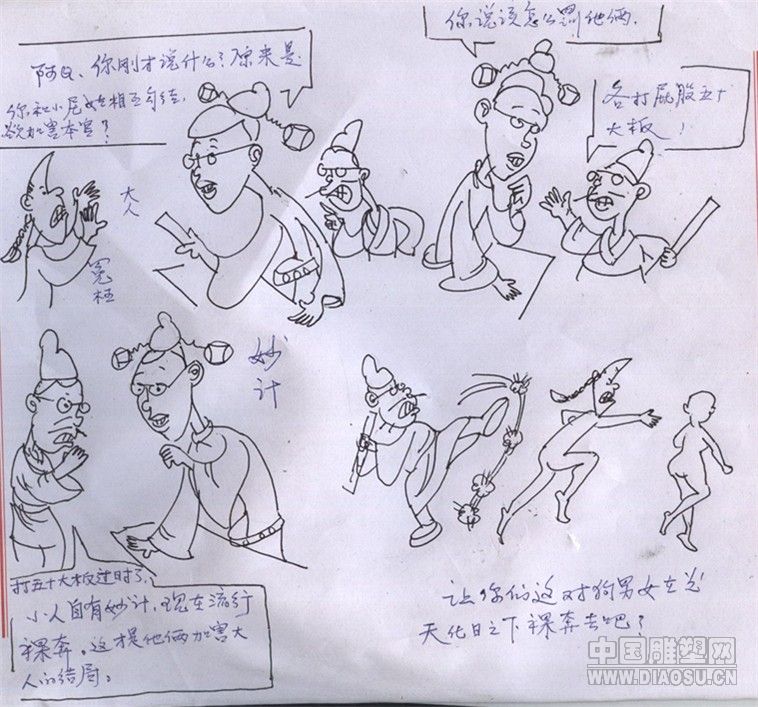 阿Q、你刚才说什么？原来是
你和小尼姑相互勾结，
欲加害本官？
大人
冤枉
你说该怎么罚他俩.
各打屁股五十
大板！
妙计
打五十大板过时了、
小人自有妙计，现在流行
裸奔。这才是他俩加害大
人的结局。
让你们这对狗男女在光
天化日之下裸奔去吧？
中国雕塑网
WWW.DIAOSU.CN